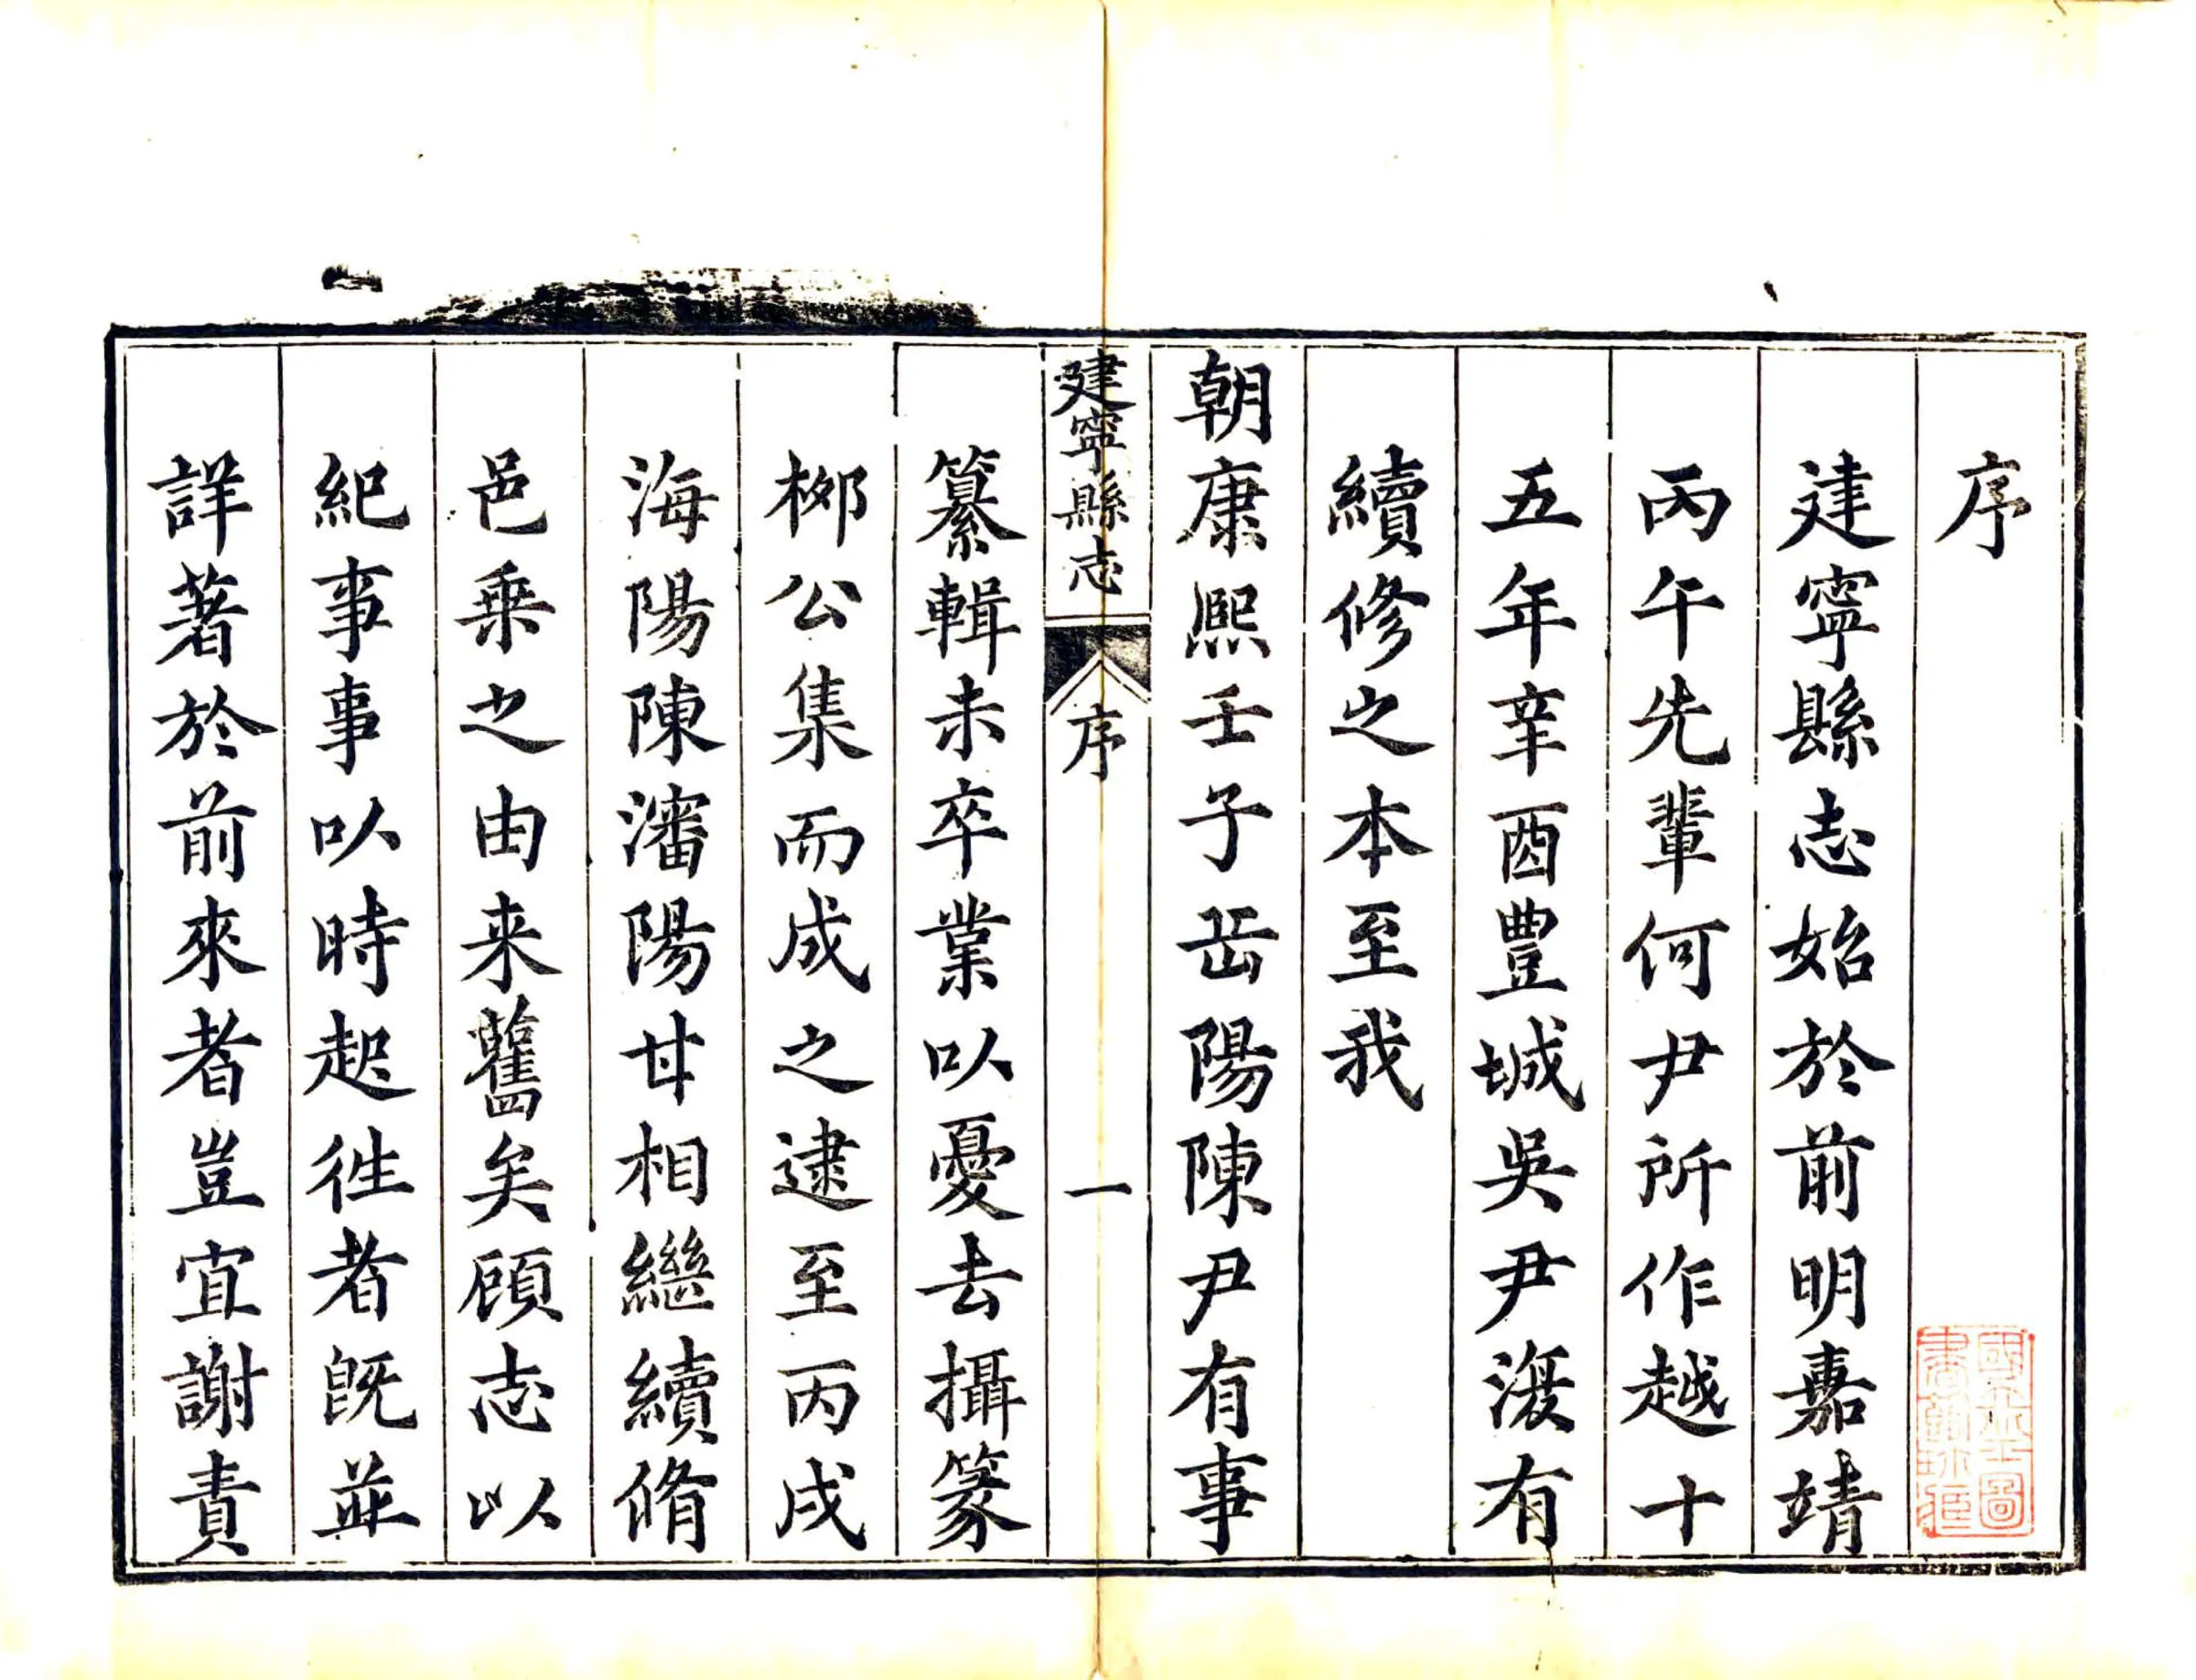 序
建寧縣志始於前明嘉靖
丙午先輩何尹所作越十
五年辛酉豐城吳尹復有
續修之本至我
朝康熙壬子岳陽陳尹有事
建寧縣志 序 一
纂輯未卒業以憂去攝篆
栁公集而成之逮至丙戌
海陽陳瀋陽甘相繼續脩
邑乗之由来舊矣顧志以
紀事事以時起徃者既並
詳著於前來者豈宜謝責
國立北平圖
書館珍藏